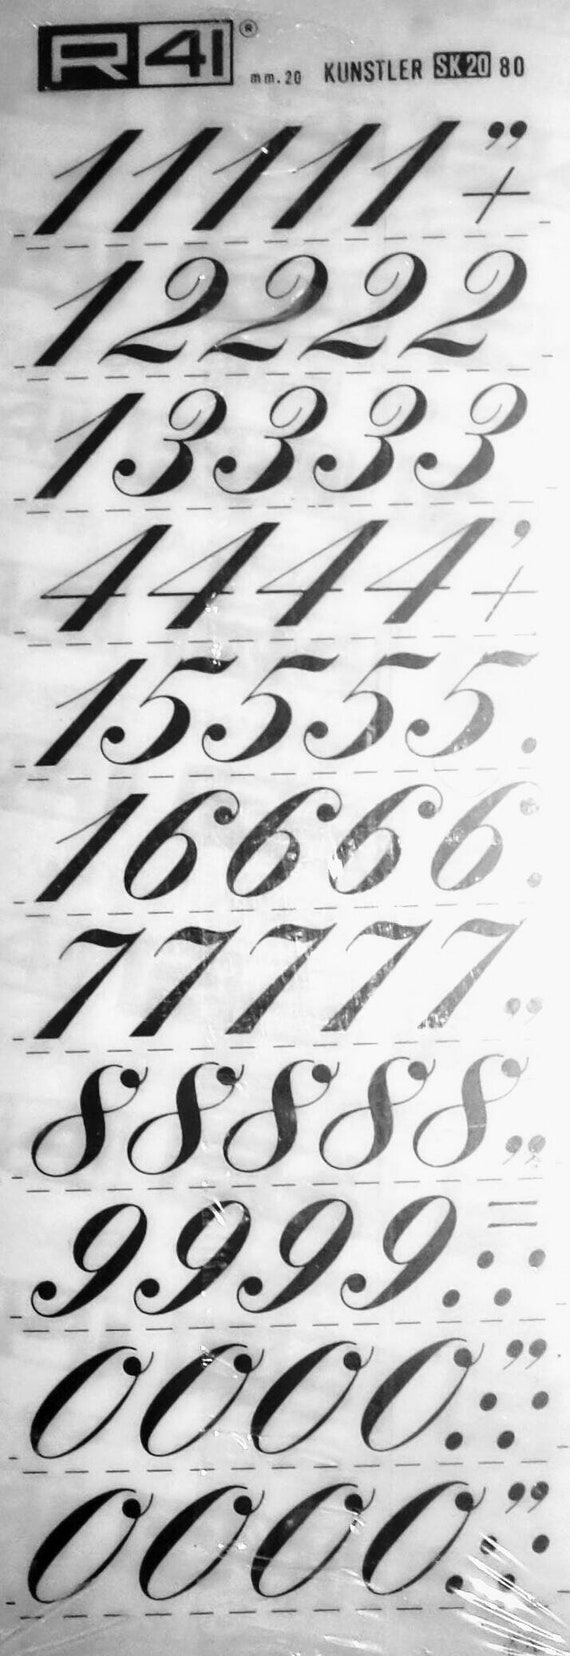 R41® mm.20 KUNSTLER SK20 80
11111 ” +
12222
13333
4444 ’ +
15555 .
16666 .
77777 ,,
88888 ,,
9999 . : = :
0000 . : ” :
0000 . : ” :